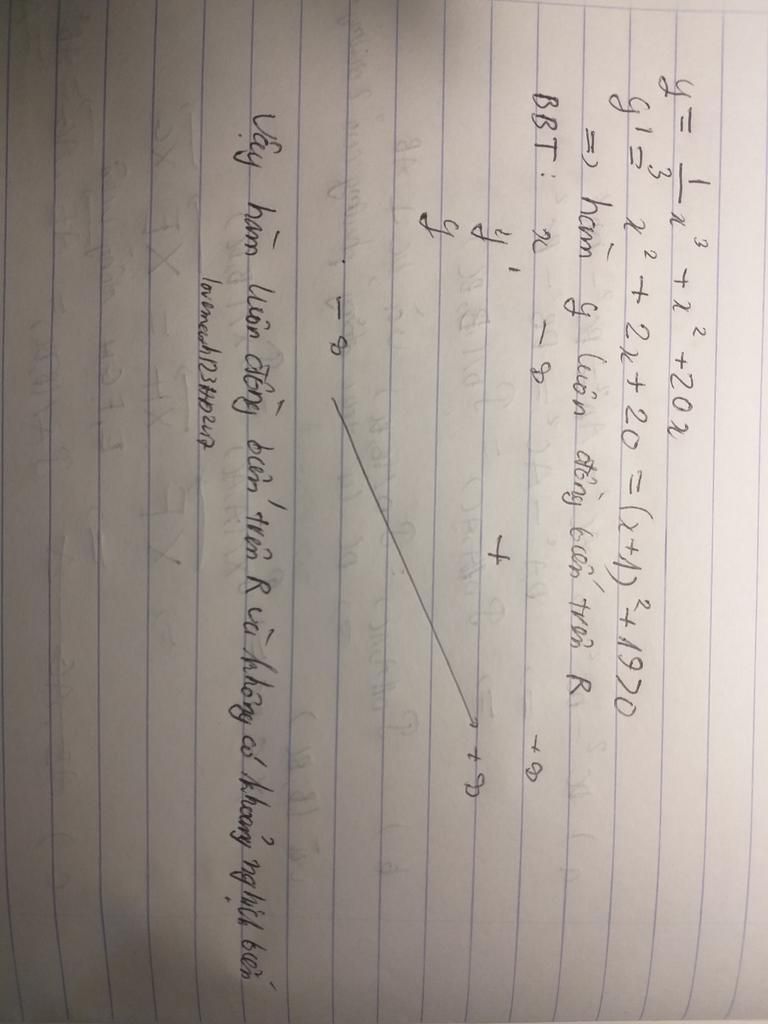 y = 1/3 x³ + x² + 20x
y' = x² + 2x + 20 = (x+1)² + 19 > 0
=> hàm y luôn đồng biến trên R
BBT: x -∞ +∞
y' +
y +∞
-∞
Vậy hàm luôn đồng biến trên R và không có khoảng nghịch biến